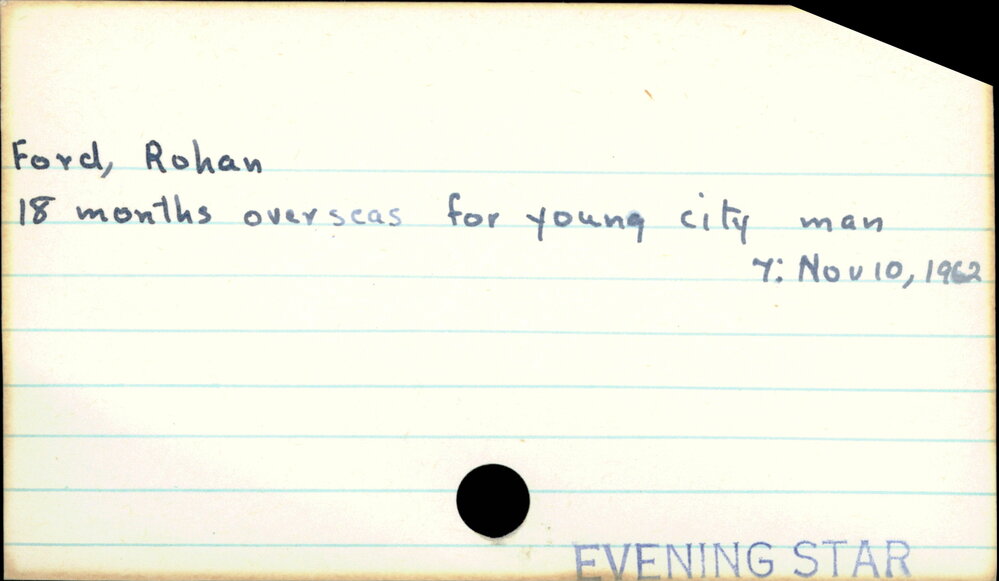 Ford, Rohan
18 months overseas for young city man
7: Nov 10, 1962
EVENING STAR